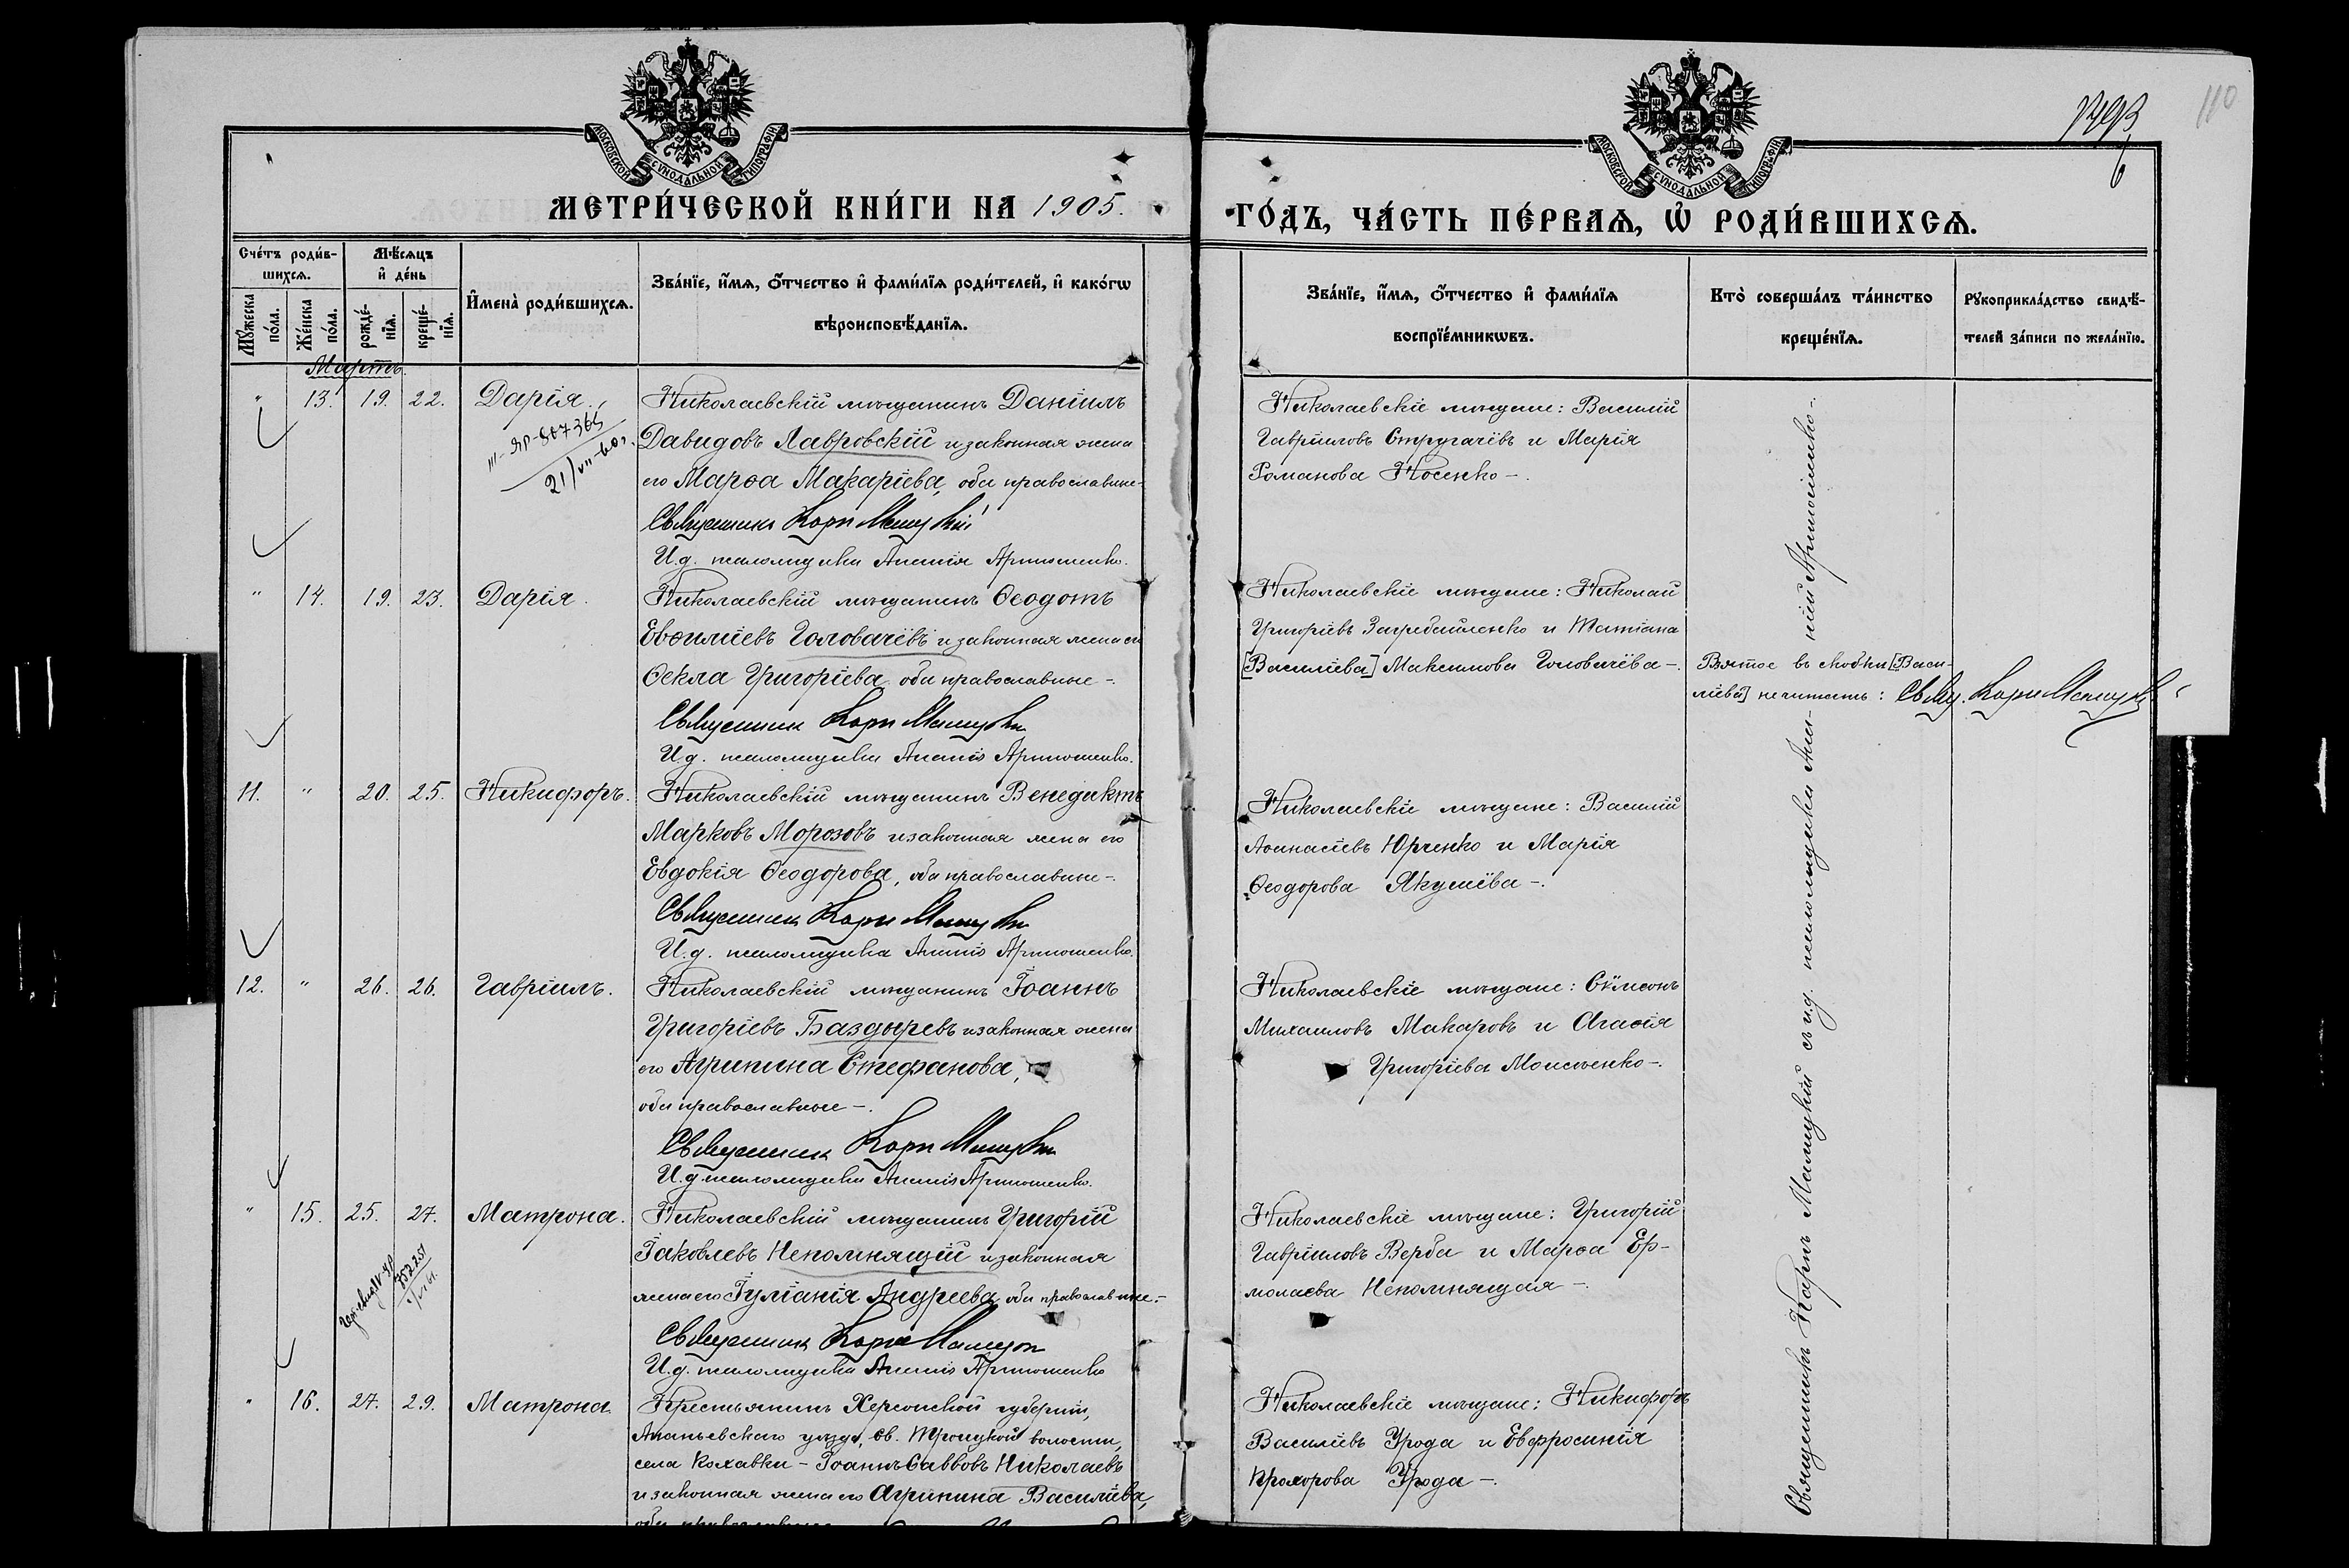 110
1793
6
МОСКОВСКОЙ СѴНОДАЛЬНОЙ ТИПОГРАФІИ
МОСКОВСКОЙ СѴНОДАЛЬНОЙ ТИПОГРАФІИ
МЕТРИ́ЧЕСКОЙ КНИ́ГИ НА 1905.
ГО́ДЪ, ЧА́СТЬ ПЕ́РВАѦ, Ѡ҆ РОДИ́ВШИХСѦ.
Сче́тъ роди́в-
шихсѧ.
Мꙋ́жеска
по́ла.
Же́нска
по́ла.
Мѣ́сѧцъ
и҆ де́нь
рожде́-
нїѧ.
креще́-
нїѧ.
И҆мена̀ роди́вшихсѧ.
Зва́нїе, и҆́мѧ, ѻ҆́тчество и҆ фами́лїѧ роди́телей, и҆ како́гѡ
вѣроисповѣ́данїѧ.
Зва́нїе, и҆́мѧ, ѻ҆́тчество и҆ фами́лїѧ
воспрїе́мникѡвъ.
Кто̀ соверша́лъ та́инство
креще́нїѧ.
Рꙋкоприкла́дство свидѣ́-
телей за́писи по жела́нїю.
Мартъ.
" 13. 19. 22. Дарія.
Николаевскій мѣщанинъ Даніилъ
Давидовъ Лавровскій и законная жена
его Марѳа Макаріева, оба православные-
Священникъ Карпъ
И.д. псаломщика Ананія Артюшенко.
Николаевскіе мѣщане: Василій
Гавріиловъ Стругачёвъ и Марія
Романова Носенко -.
III-ЯР-807365
21/VII-60г.
" 14. 19. 23. Дарія.
Николаевскій мѣщанинъ Ѳеодотъ
Евѳиміевъ Головачёвъ и законная жена его
Ѳекла Григоріева, оба православные -.
Священникъ Карпъ
И.д. псаломщика Ананія Артюшенко.
Николаевскіе мѣщане: Николай
Григоріевъ Загребайленко и Татіана
[Василіева] Максимова Головачёва -.
Взятое въ скобки [Васи-
ліева] не читать: Свящ. Карпъ
11. " 20. 25. Никифоръ.
Николаевскій мѣщанинъ Венедиктъ
Марковъ Морозовъ и законная жена его
Евдокія Ѳеодорова, оба православные -.
Священникъ Карпъ
И.д. псаломщика Ананія Артюшенко.
Николаевскіе мѣщане: Василій
Аѳанасіевъ Юрченко и Марія
Ѳеодорова Якушёва -.
12. " 26. 26. Гавріилъ.
Николаевскій мѣщанинъ Іоаннъ
Григоріевъ Баздыревъ и законная жена
его Агрипина Стефанова,
оба православные -.
Священникъ Карпъ
И.д. псаломщика Ананія Артюшенко.
Николаевскіе мѣщане: Сѵмеонъ
Михаиловъ Макаровъ и Агаѳія
Григоріева Моисеенко -.
" 15. 25. 27. Матрона.
Николаевскій мѣщанинъ Григорій
Іаковлевъ Непомнящій и законная
жена его Іуліанія Андреева, оба православные.-
Священникъ Карпъ
И.д. псаломщика Ананія Артюшенко
Николаевскіе мѣщане: Григорій
Гавріиловъ Верба и Марѳа Ер-
молаева Непомнящая -.
" 16. 27. 29. Матрона.
Крестьянинъ Херсонской губерніи,
Ананьевскаго уѣзда, Св. Троицкой волости,
села Кохавки - Іоаннъ Саввовъ Николаевъ
и законная жена его Агрипина Василіева,
оба православные
Николаевскіе мѣщане: Никифоръ
Василіевъ Урода и Евфросинія
Прохорова Урода -.
Священникъ Карпъ съ и.д. псаломщика Ана-
ніей Артюшенко -.